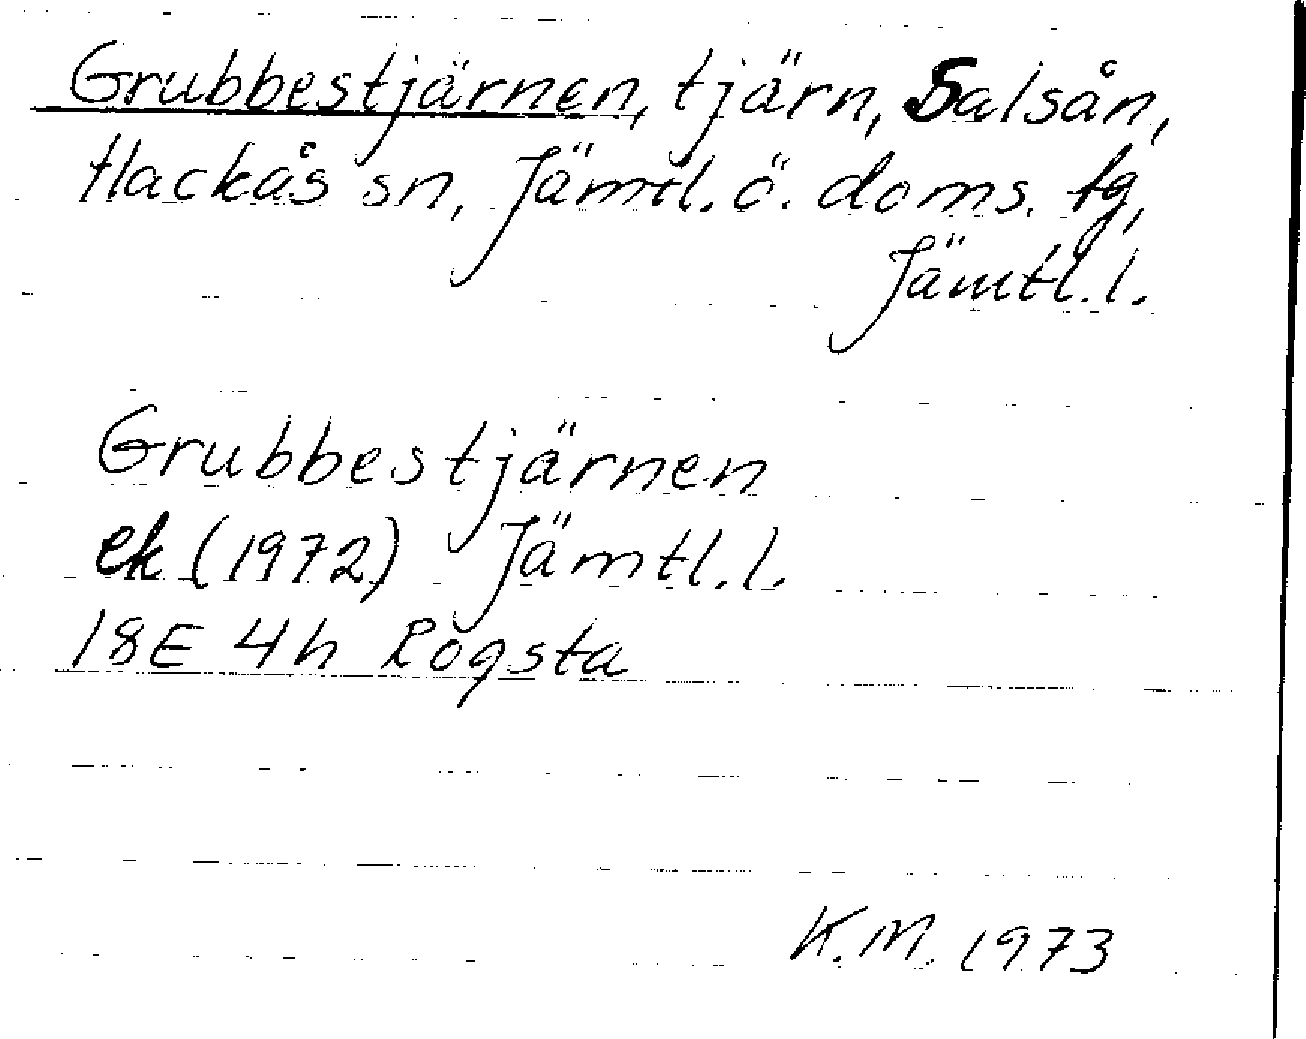 Grubbestjärnen, tjärn, Salsån,
Hackås sn, Jämtl. ö. doms. tg,
Jämtl. l.
Grubbestjärnen
ek (1972) Jämtl. l.
18E 4h Rögsta
K.M. 1973